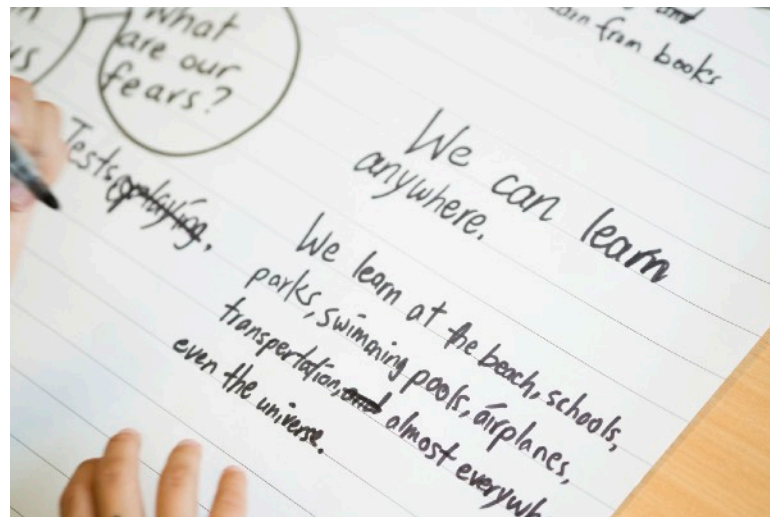 What
are our
fears?
and
from books
Tests, playing,
We can learn
anywhere.
We learn at the beach, schools,
parks, swimming pools, airplanes,
transpertation, and almost
even the universe.